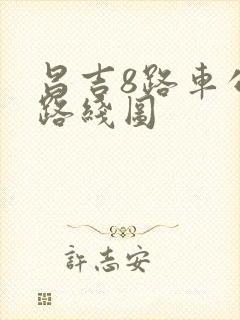 昌吉8路車公
路綫圖
許志安